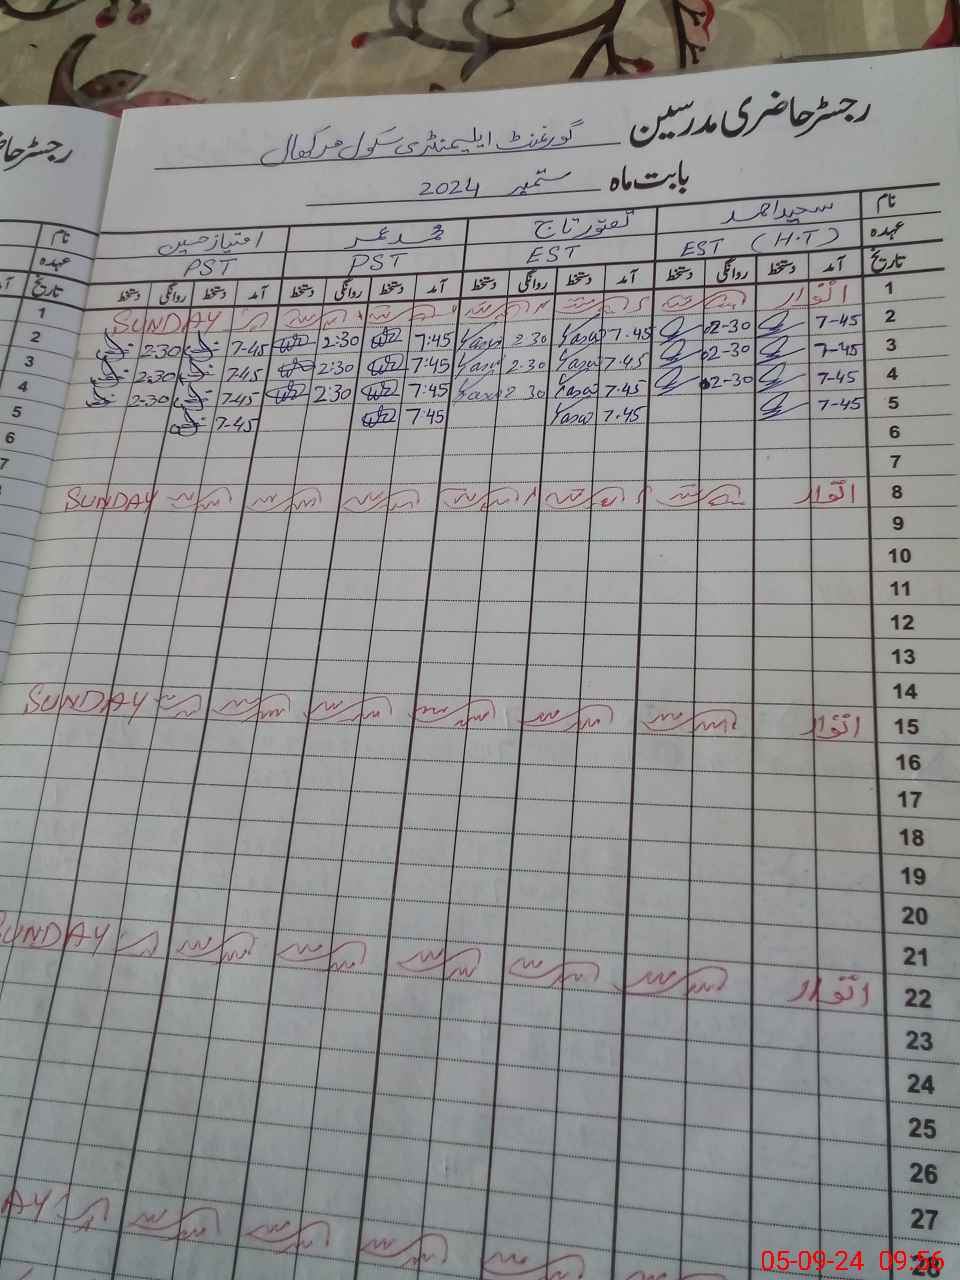 رجسٹر حاضری مدرسین گورنمنٹ ایلیمنٹری سکول
بابت ماہ ستمبر 2024
رجسٹر حا
نام سعید احمد تاج محمد عمر امتیاز حسین
عہدہ EST (H.T) EST PST PST
تاریخ آمد دستخط روانگی دستخط آمد دستخط روانگی دستخط آمد دستخط روانگی دستخط آمد دستخط روانگی دستخط
نام
عہدہ
تاریخ
1 اتوار SUNDAY 1
2 7-45 2-30 7.45 2.30 7:45 2:30 7-45 2:30 2
3 7-45 2-30 7.45 2.30 7:45 2:30 7-45 2:30 3
4 7-45 2-30 7.45 2 30 7:45 2:30 7-45 2-30 4
5 7-45 7.45 7:45 7-45 5
6 6
7 7
8 اتوار SUNDAY
9
10
11
12
13
14
15 اتوار SUNDAY
16
17
18
19
20
21
22 اتوار SUNDAY
23
24
25
26
27
28
05-09-24 09:56